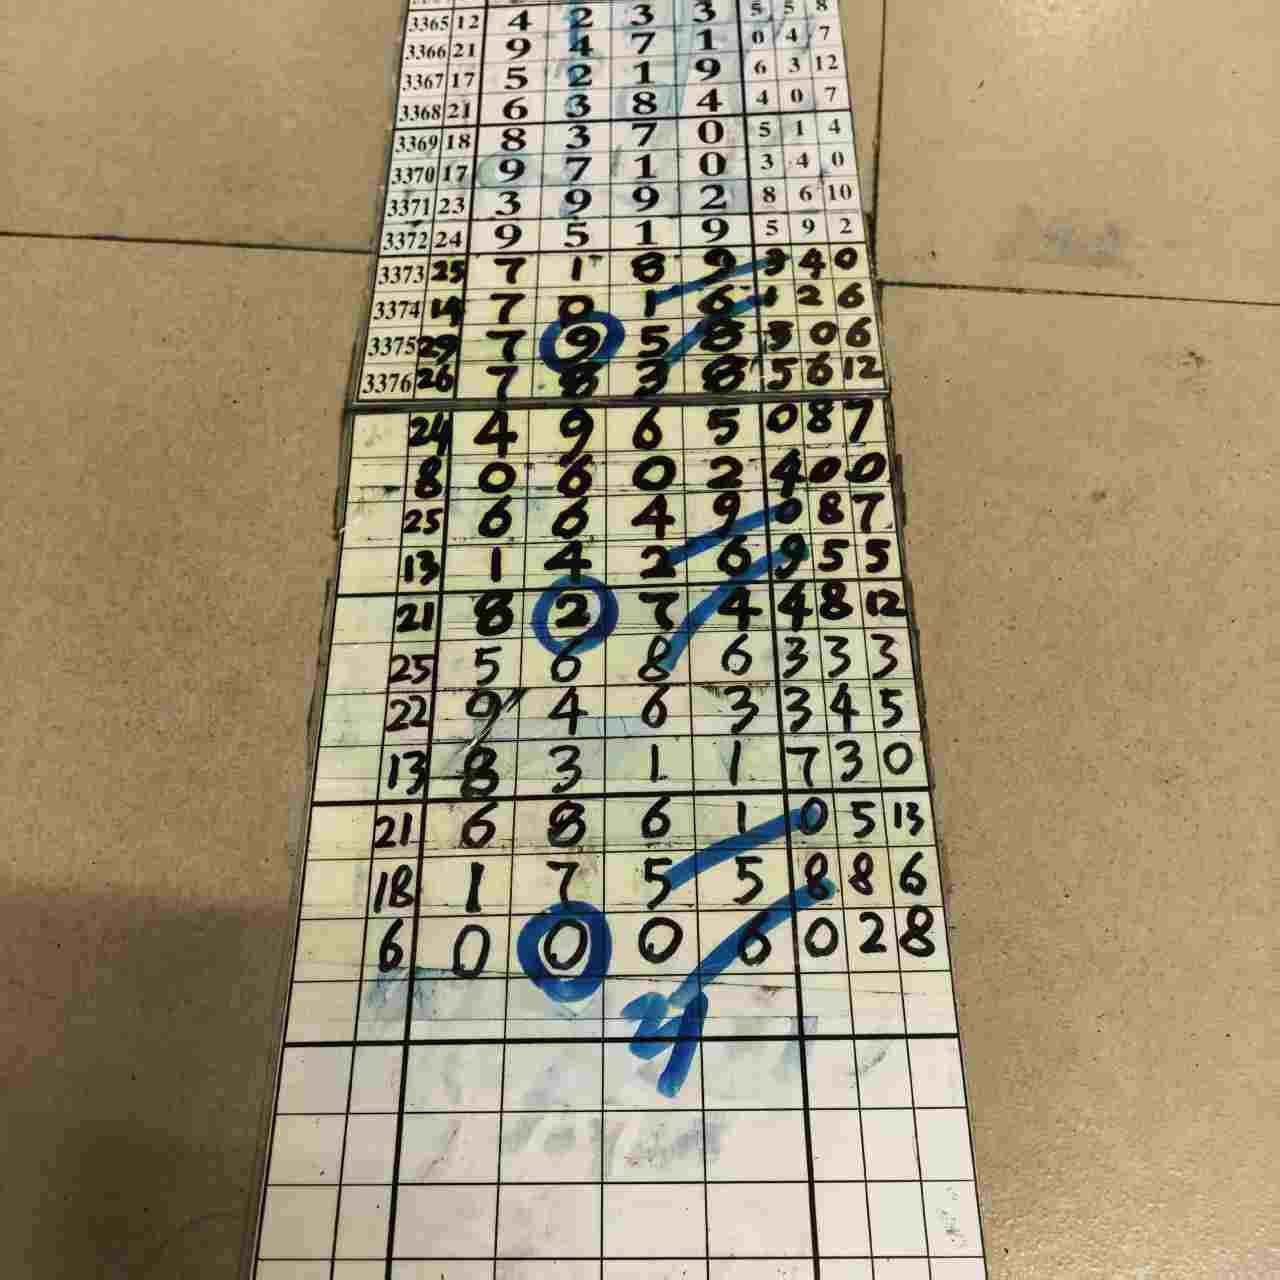 3365 12 4 2 3 3 5 5 8
3366 21 9 4 7 1 0 4 7
3367 17 5 2 1 9 6 3 12
3368 21 6 3 8 4 4 0 7
3369 18 8 3 7 0 5 1 4
3370 17 9 7 1 0 3 4 0
3371 23 3 9 9 2 8 6 10
3372 24 9 5 1 9 5 9 2
3373 25 7 1 8 9 3 4 0
3374 14 7 0 1 6 1 2 6
3375 29 7 9 5 8 3 0 6
3376 26 7 8 3 8 5 6 12
24 4 9 6 5 0 8 7
8 0 6 0 2 4 0 0
25 6 6 4 9 0 8 7
13 1 4 2 6 9 5 5
21 8 2 7 4 4 8 12
25 5 6 8 6 3 3 3
22 9 4 6 3 3 4 5
13 8 3 1 1 7 3 0
21 6 8 6 1 0 5 13
18 1 7 5 5 8 8 6
6 0 0 0 6 0 2 8